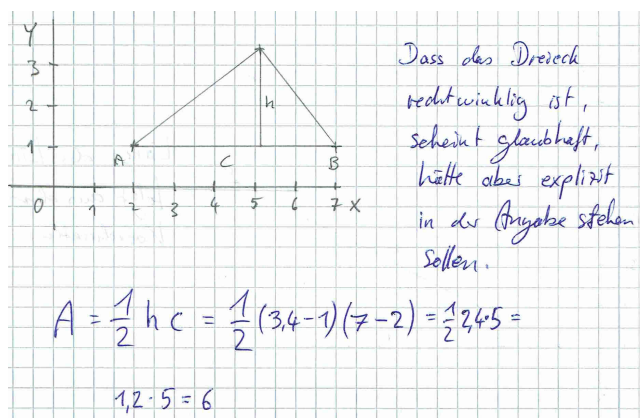 Y
3
2
1
A
C
B
h
0 1 2 3 4 5 6 7 X
Dass das Dreieck
rechtwinklig ist,
scheint glaubhaft,
hätte aber explizit
in der Angabe stehen
sollen.
A = 1/2 h c = 1/2 (3,4-1)(7-2) = 1/2 2,4·5 =
1,2·5 = 6